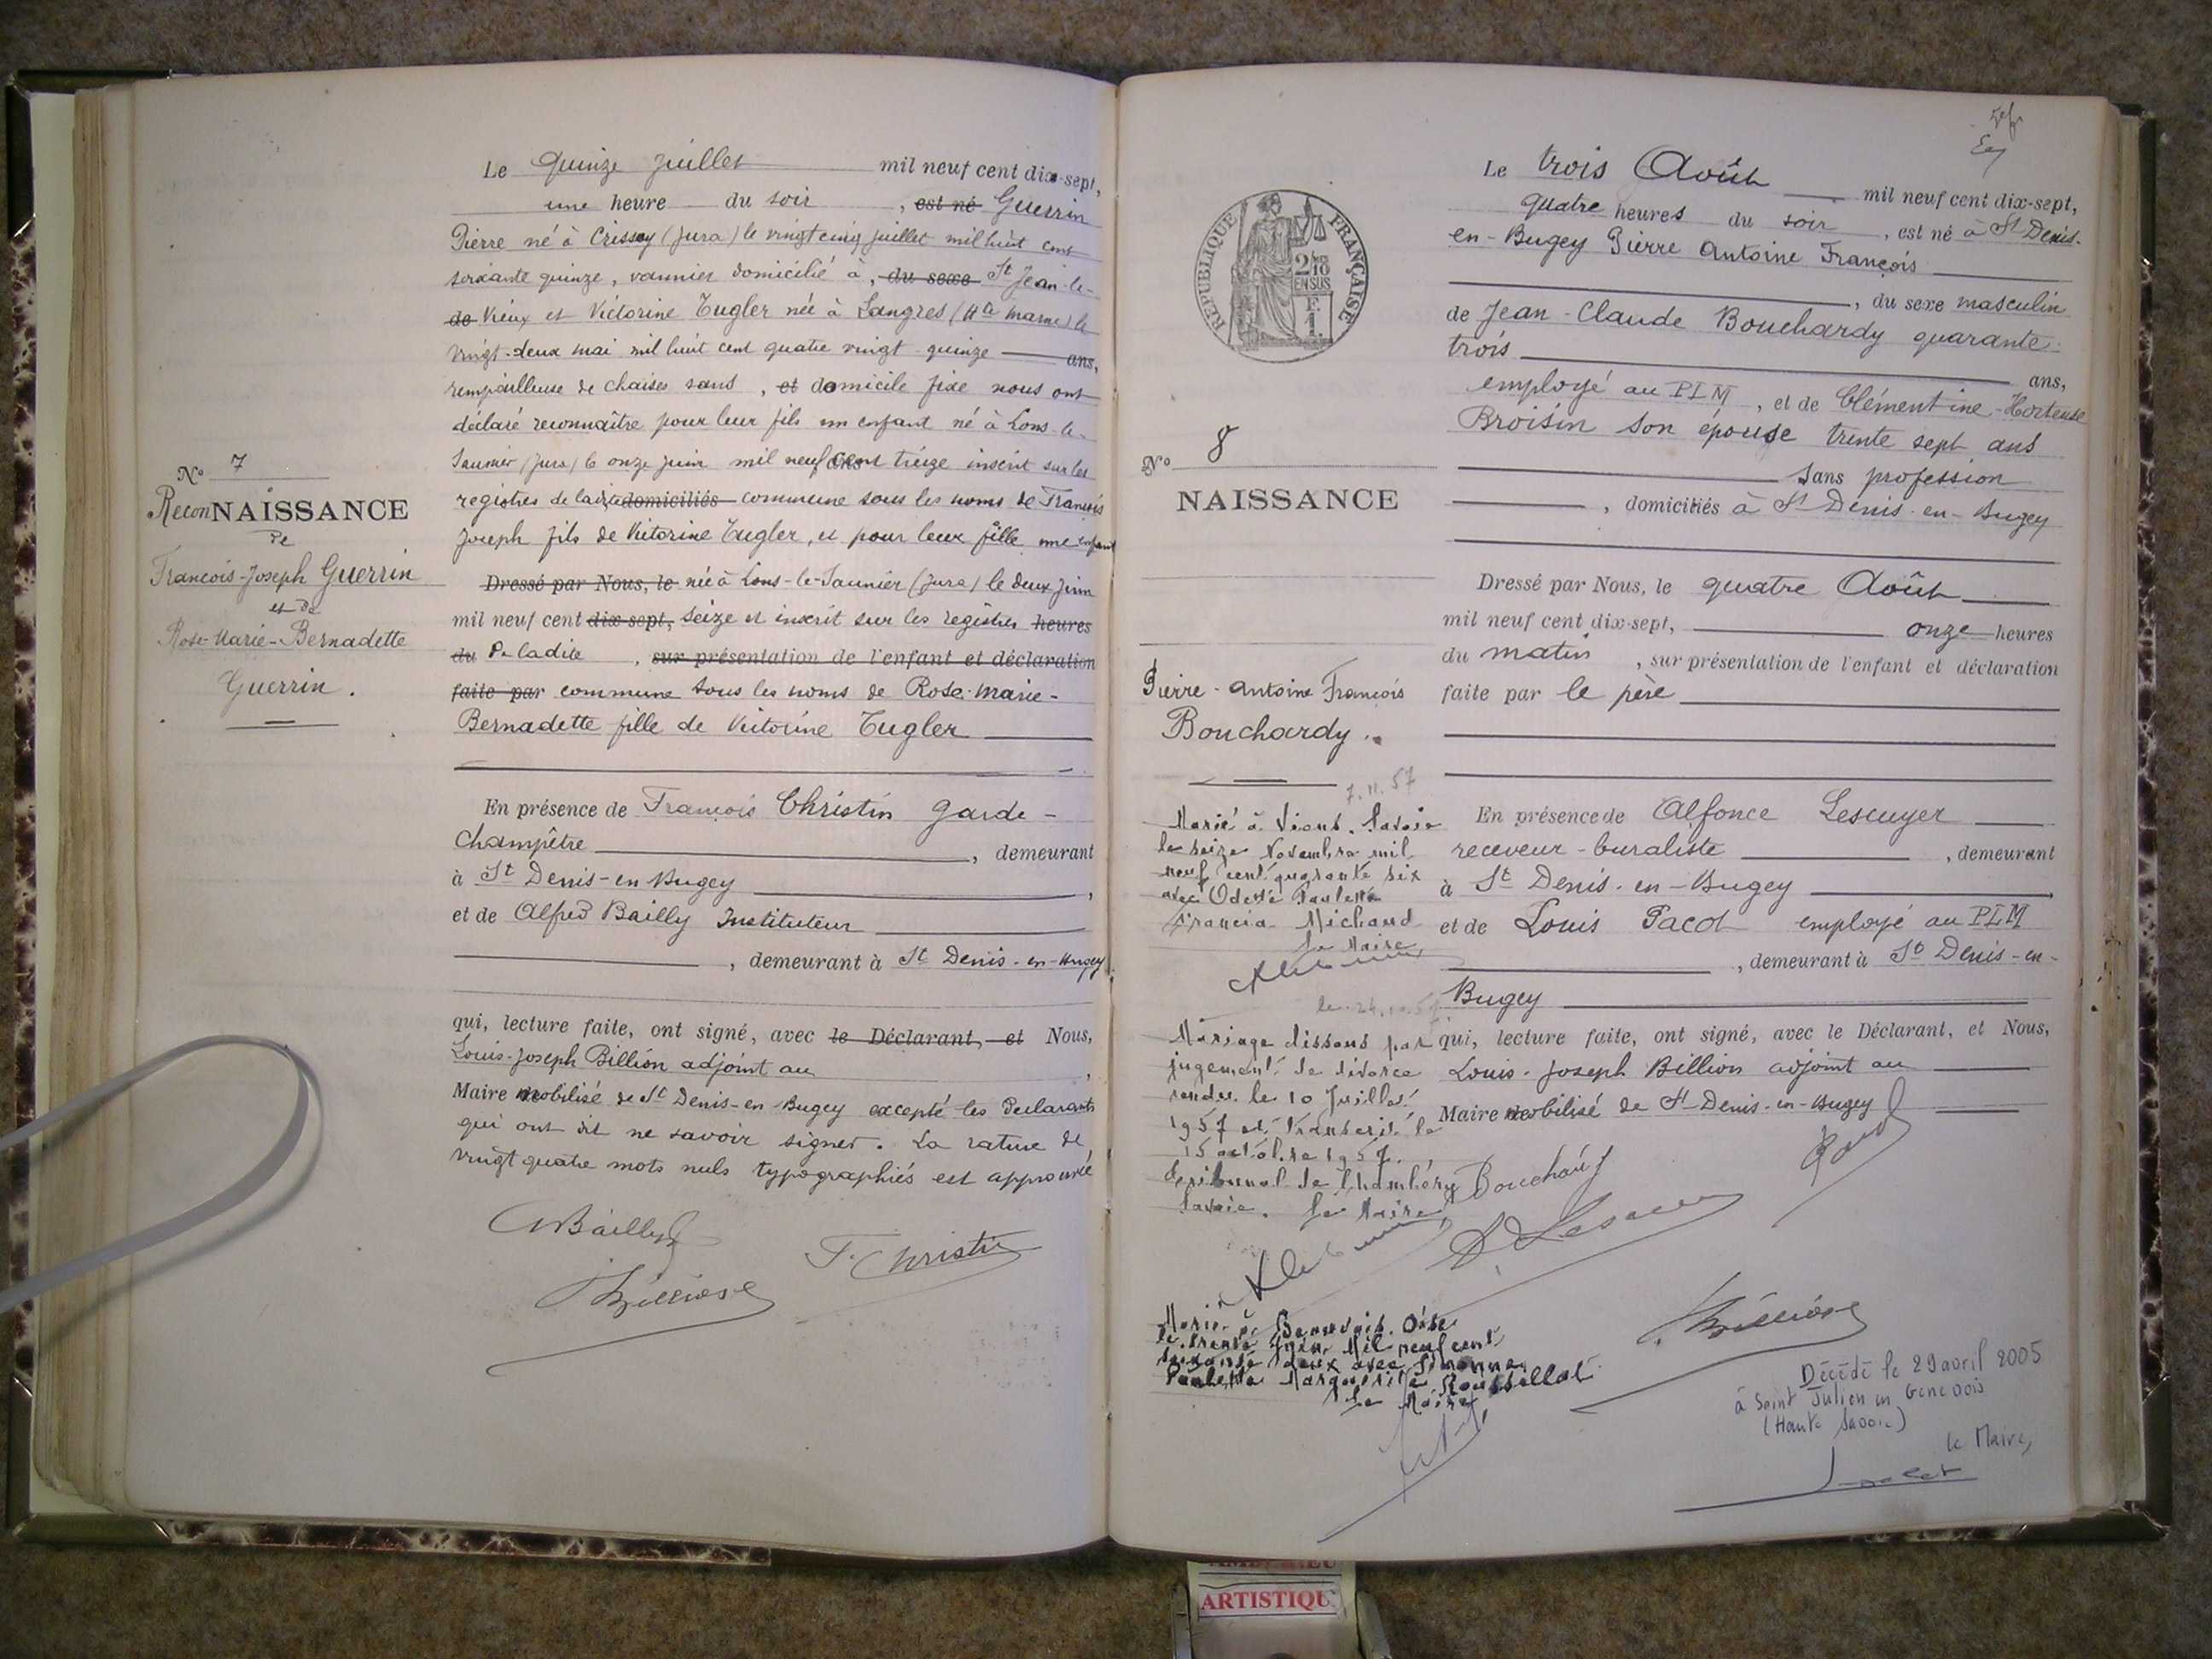 Le quinze juillet mil neuf cent dix-sept,
une heure du soir , est né Guerrin
Pierre né à Crissey (Jura) le vingt cinq juillet mil huit cent
soixante quinze, vannier domicilié à , du sexe St Jean-le-
de Vieux et Victorine Tugler née à Langres (Hte Marne) le
vingt-deux mai mil huit cent quatre vingt quinze ans,
rempailleuse de chaises sans , et domicile fixe nous ont
déclaré reconnaître pour leur fils un enfant né à Lons-le-
Saunier (Jura) le onze juin mil neuf cent treize inscrit sur les
registres de ladite domiciliés commune sous les noms de François
Joseph fils de Victorine Tugler, et pour leur fille une enfant
Dressé par Nous, le née à Lons-le-Saunier (Jura) le deux juin
mil neuf cent dix-sept, seize et inscrit sur les registres heures
du De ladite , sur présentation de l'enfant et déclaration
faite par commune sous les noms de Rose-Marie-
Bernadette fille de Victorine Tugler
En présence de François Christin garde-
champêtre , demeurant
à St Denis-en Bugey ,
et de Alfred Bailly Instituteur
, demeurant à St Denis-en-Bugey
qui, lecture faite, ont signé, avec le Déclarant, et Nous,
Louis-Joseph Billion adjoint au ,
Maire mobilisé de St Denis-en Bugey excepté les déclarants
qui ont dit ne savoir signer. La rature de
vingt quatre mots nuls typographiés est approuvé
ABailly
F. Christin
Billion
No 7
ReconNAISSANCE
De
François-Joseph Guerrin
et de
Rose-Marie-Bernadette
Guerrin.
RÉPUBLIQUE FRANÇAISE
2/10
EN SUS
F.
1.
Le trois Août mil neuf cent dix-sept,
quatre heures du soir , est né à St Denis-
en-Bugey Pierre Antoine François
, du sexe masculin
de Jean-Claude Bouchardy quarante-
trois ans,
employé au PLM , et de Clémentine-Hortense
Broisin son épouse trente sept ans
sans profession
, domiciliés à St Denis-en-Bugey
Dressé par Nous, le quatre Août
mil neuf cent dix-sept, onze heures
du matin , sur présentation de l'enfant et déclaration
faite par le père
En présence de Alfonce Lescuyer
receveur-buraliste , demeurant
à St Denis-en-Bugey
et de Louis Pacot employé au PLM
, demeurant à St Denis-en-
Bugey
qui, lecture faite, ont signé, avec le Déclarant, et Nous,
Louis-Joseph Billion adjoint au
Maire mobilisé de St Denis-en-Bugey
Bouchardy
Billion
No 8
NAISSANCE
Pierre-Antoine François
Bouchardy.
7.11.57
Marié à Vions. Savoie
le seize Novembre mil
neuf cent quarante six
avec Odette Paulette
Francia Michaud
Le Maire,
Mariage dissous par
jugement de divorce
rendu le 10 Juillet
1957 et transcrit le
15 octobre 1957.
Tribunal de Chambéry
Savoie. Le Maire,
Marié à Beauvais. Oise
le trente Juin Mil neuf cent
soixante deux avec Simonne
Paulette Marguerite Roussillot
Le Maire,
Décédé le 29 avril 2005
à Saint Julien en Genevois
(Haute Savoie)
le Maire,
ARTISTIQU